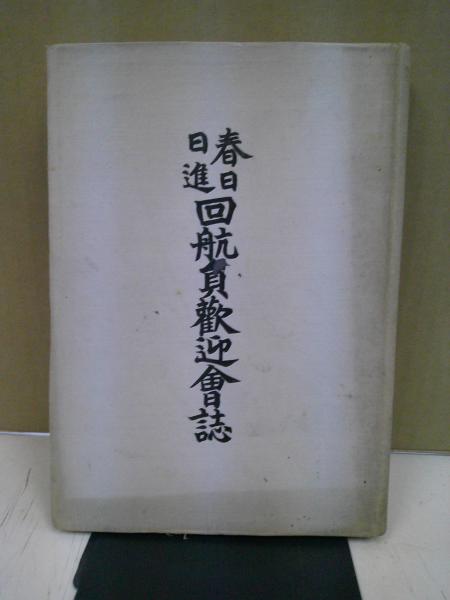 春日
日進
回航員歡迎會誌